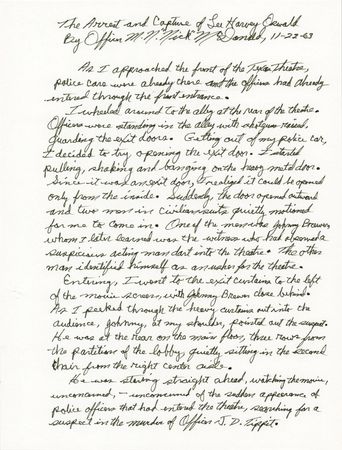 The Arrest and Capture of Lee Harvey Oswald
By Officer M. N. "Nick" McDonald, 11-22-63
As I approached the front of the Texas Theatre,
police cars were already there and the officers had already
entered through the front entrance.
I wheeled around to the alley at the rear of the theatre.
Officers were standing in the alley with shotguns raised,
guarding the exit doors. Getting out of my police car,
I decided to try opening the exit door. I started
pulling, shaking and banging on the heavy metal door.
Since it was an exit door, I realized it could be opened
only from the inside. Suddenly, the door opened outward
and two men in civilian suits quietly motioned
for me to come in. One of the men was Johnny Brewer
whom I later learned was the witness who had observed a
suspicious acting man dart into the theatre. The other
man identified himself as an usher for the theatre.
Entering, I went to the exit curtains to the left
of the movie screen, with Johnny Brewer close behind.
As I peeked through the heavy curtains out into the
audience, Johnny, at my shoulder, pointed out the suspect.
He was at the rear on the main floor, three rows from
the partition of the lobby, quietly sitting in the second
chair from the right center aisle.
He was staring straight ahead, watching the movie,
unconcerned, - unconcerned of the sudden appearance of
police officers that had entered the theatre, searching for a
suspect in the murder of Officer J. D. Tippit.